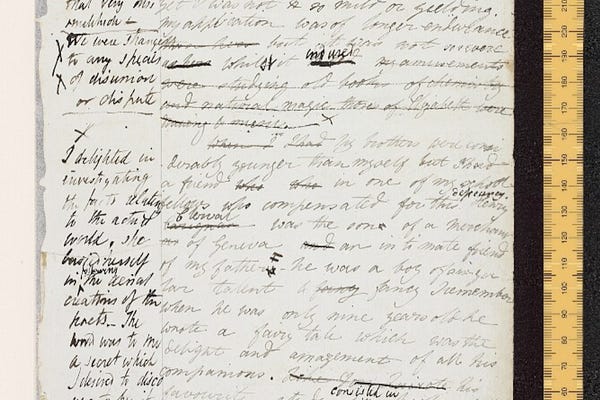 that very dis
which -
We were strang
to any species
of disunion
or dispute
I delighted in
investigating
the facts relating
to the actual
world, she
herself
in following the aerial
creations of the
poets - The
world was to me
a secret which
I desired to disco
yet I was not so mild or yielding.
my application was of longer endurance
but it was not so severe
whilst endured my amusements
were studying old books of chemistry
and natural magic those of Elizabeth were
X
I had My brothers were consi
derably younger than myself but I had
a friend in one of my
fellows who compensated for this deficiency. Henry
Clerval was the son of a merchant
of Geneva and an intimate friend
of my father - he was a boy of singu
lar talent & fancy I remember
when he was only nine years old he
wrote a fairy tale which was the
delight and amazement of all his
companions. his
favourite consisted in
210
200
190
180
170
160
150
140
130
120
110
100
90
80
70
60